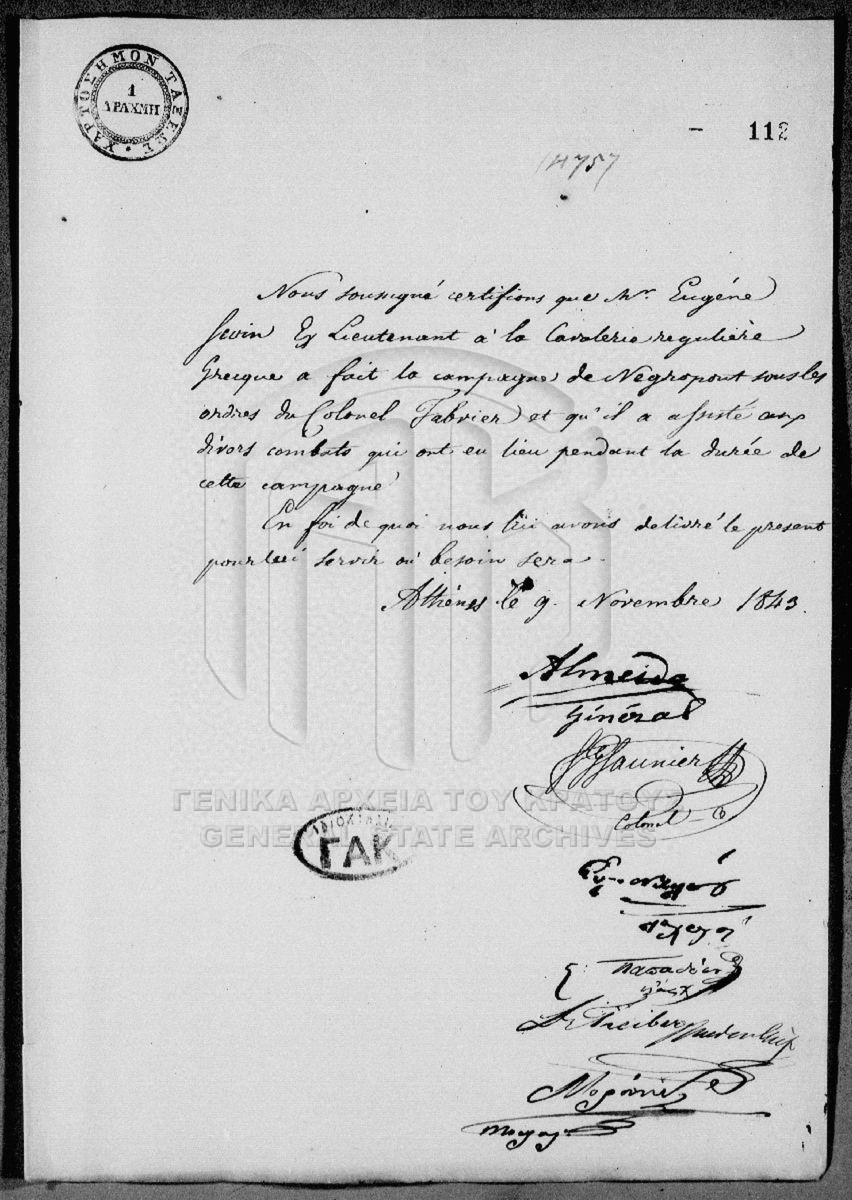 ΧΑΡΤΟΣΗΜΟΝ ΤΑΞΕΩΣ
1
ΔΡΑΧΜΗ
112
Nous soussigné certifions que Mr. Eugéne
Ex Lieutenant à la Cavalerie regulière
Grecque a fait la campagne de Négropont sous les
ordres du Colonel Fabvier et qu'il a assisté aux
divers combats qui ont eu lieu pendant la durée de
cette campagne
En foi de quoi nous lui avons delivré le present
pour lui servir où besoin sera.
Athénes le 9. Novembre 1843.
Almeida
Général
Colonel
ΓΕΝΙΚΑ ΑΡΧΕΙΑ ΤΟΥ ΚΡΑΤΟΥΣ
GENERAL STATE ARCHIVES
ΓΑΚ